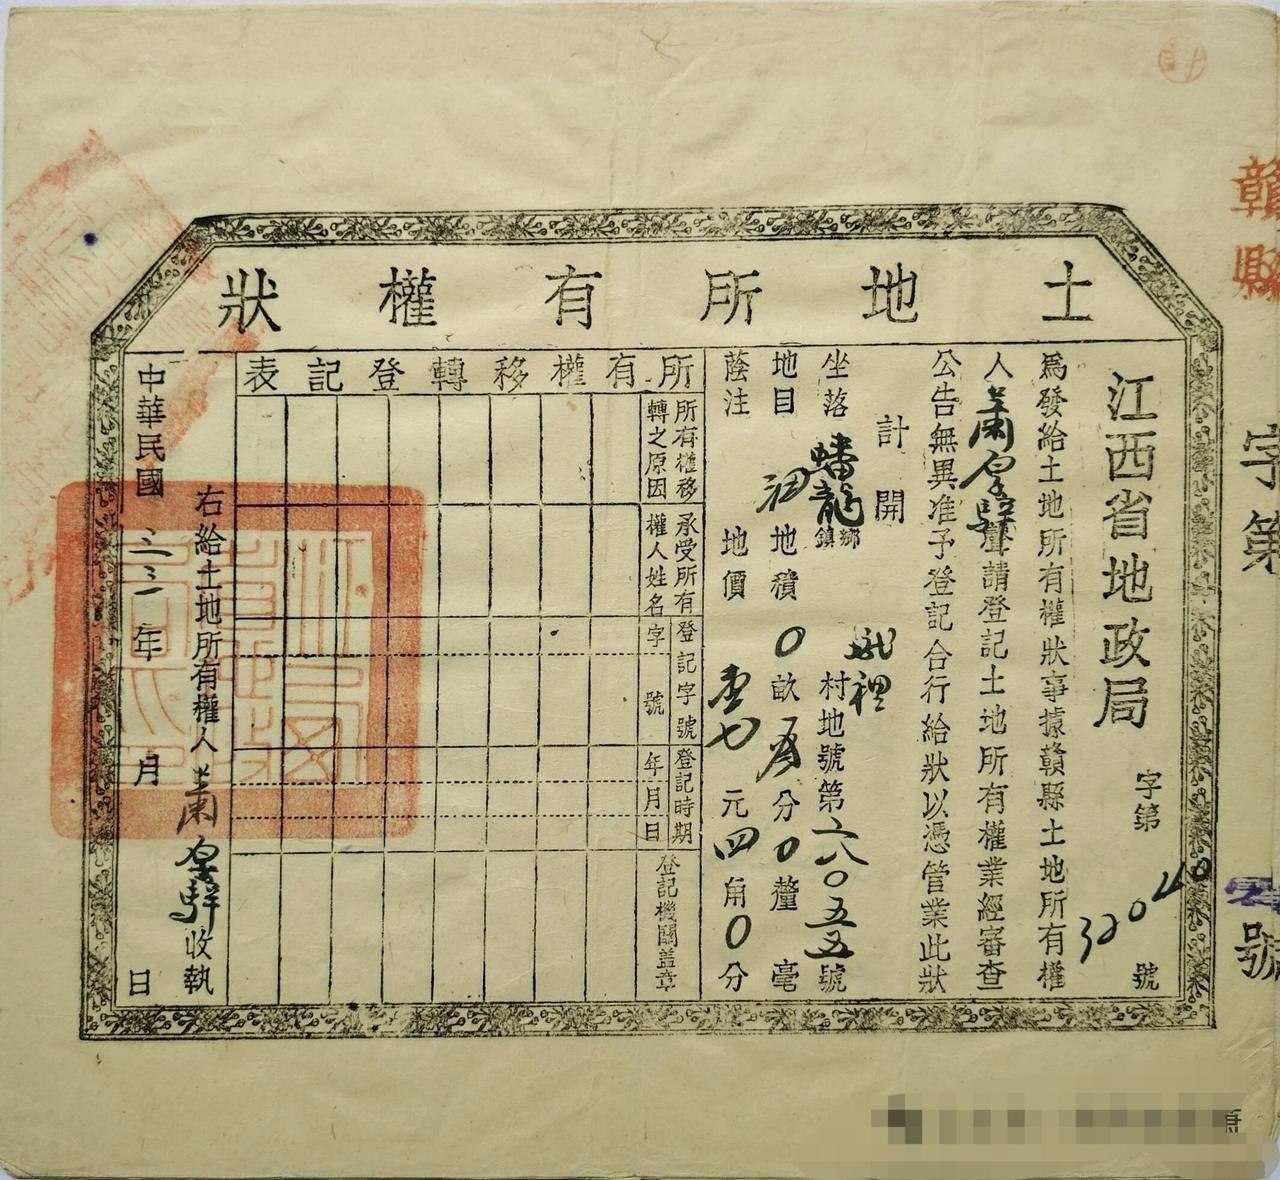 土地所有權狀
江西省地政局
字第32040號
為發給土地所有權狀事據贛縣土地所有權
人蕭聲請登記土地所有權業經審查
公告無異准予登記合行給狀以憑管業此狀
計開
坐落蟠龍鄉鎮裡村地號第六八〇五五號
地目地積0畝分0釐毫
蔭注地價壹七元四角0分
所有權移轉登記表
所有權移轉之原因
承受所有權人姓名
登記字號
字號
登記時期
年月日
登記機關蓋章
右給土地所有權人蕭收執
中華民國三三年月日
贛縣
字第
號